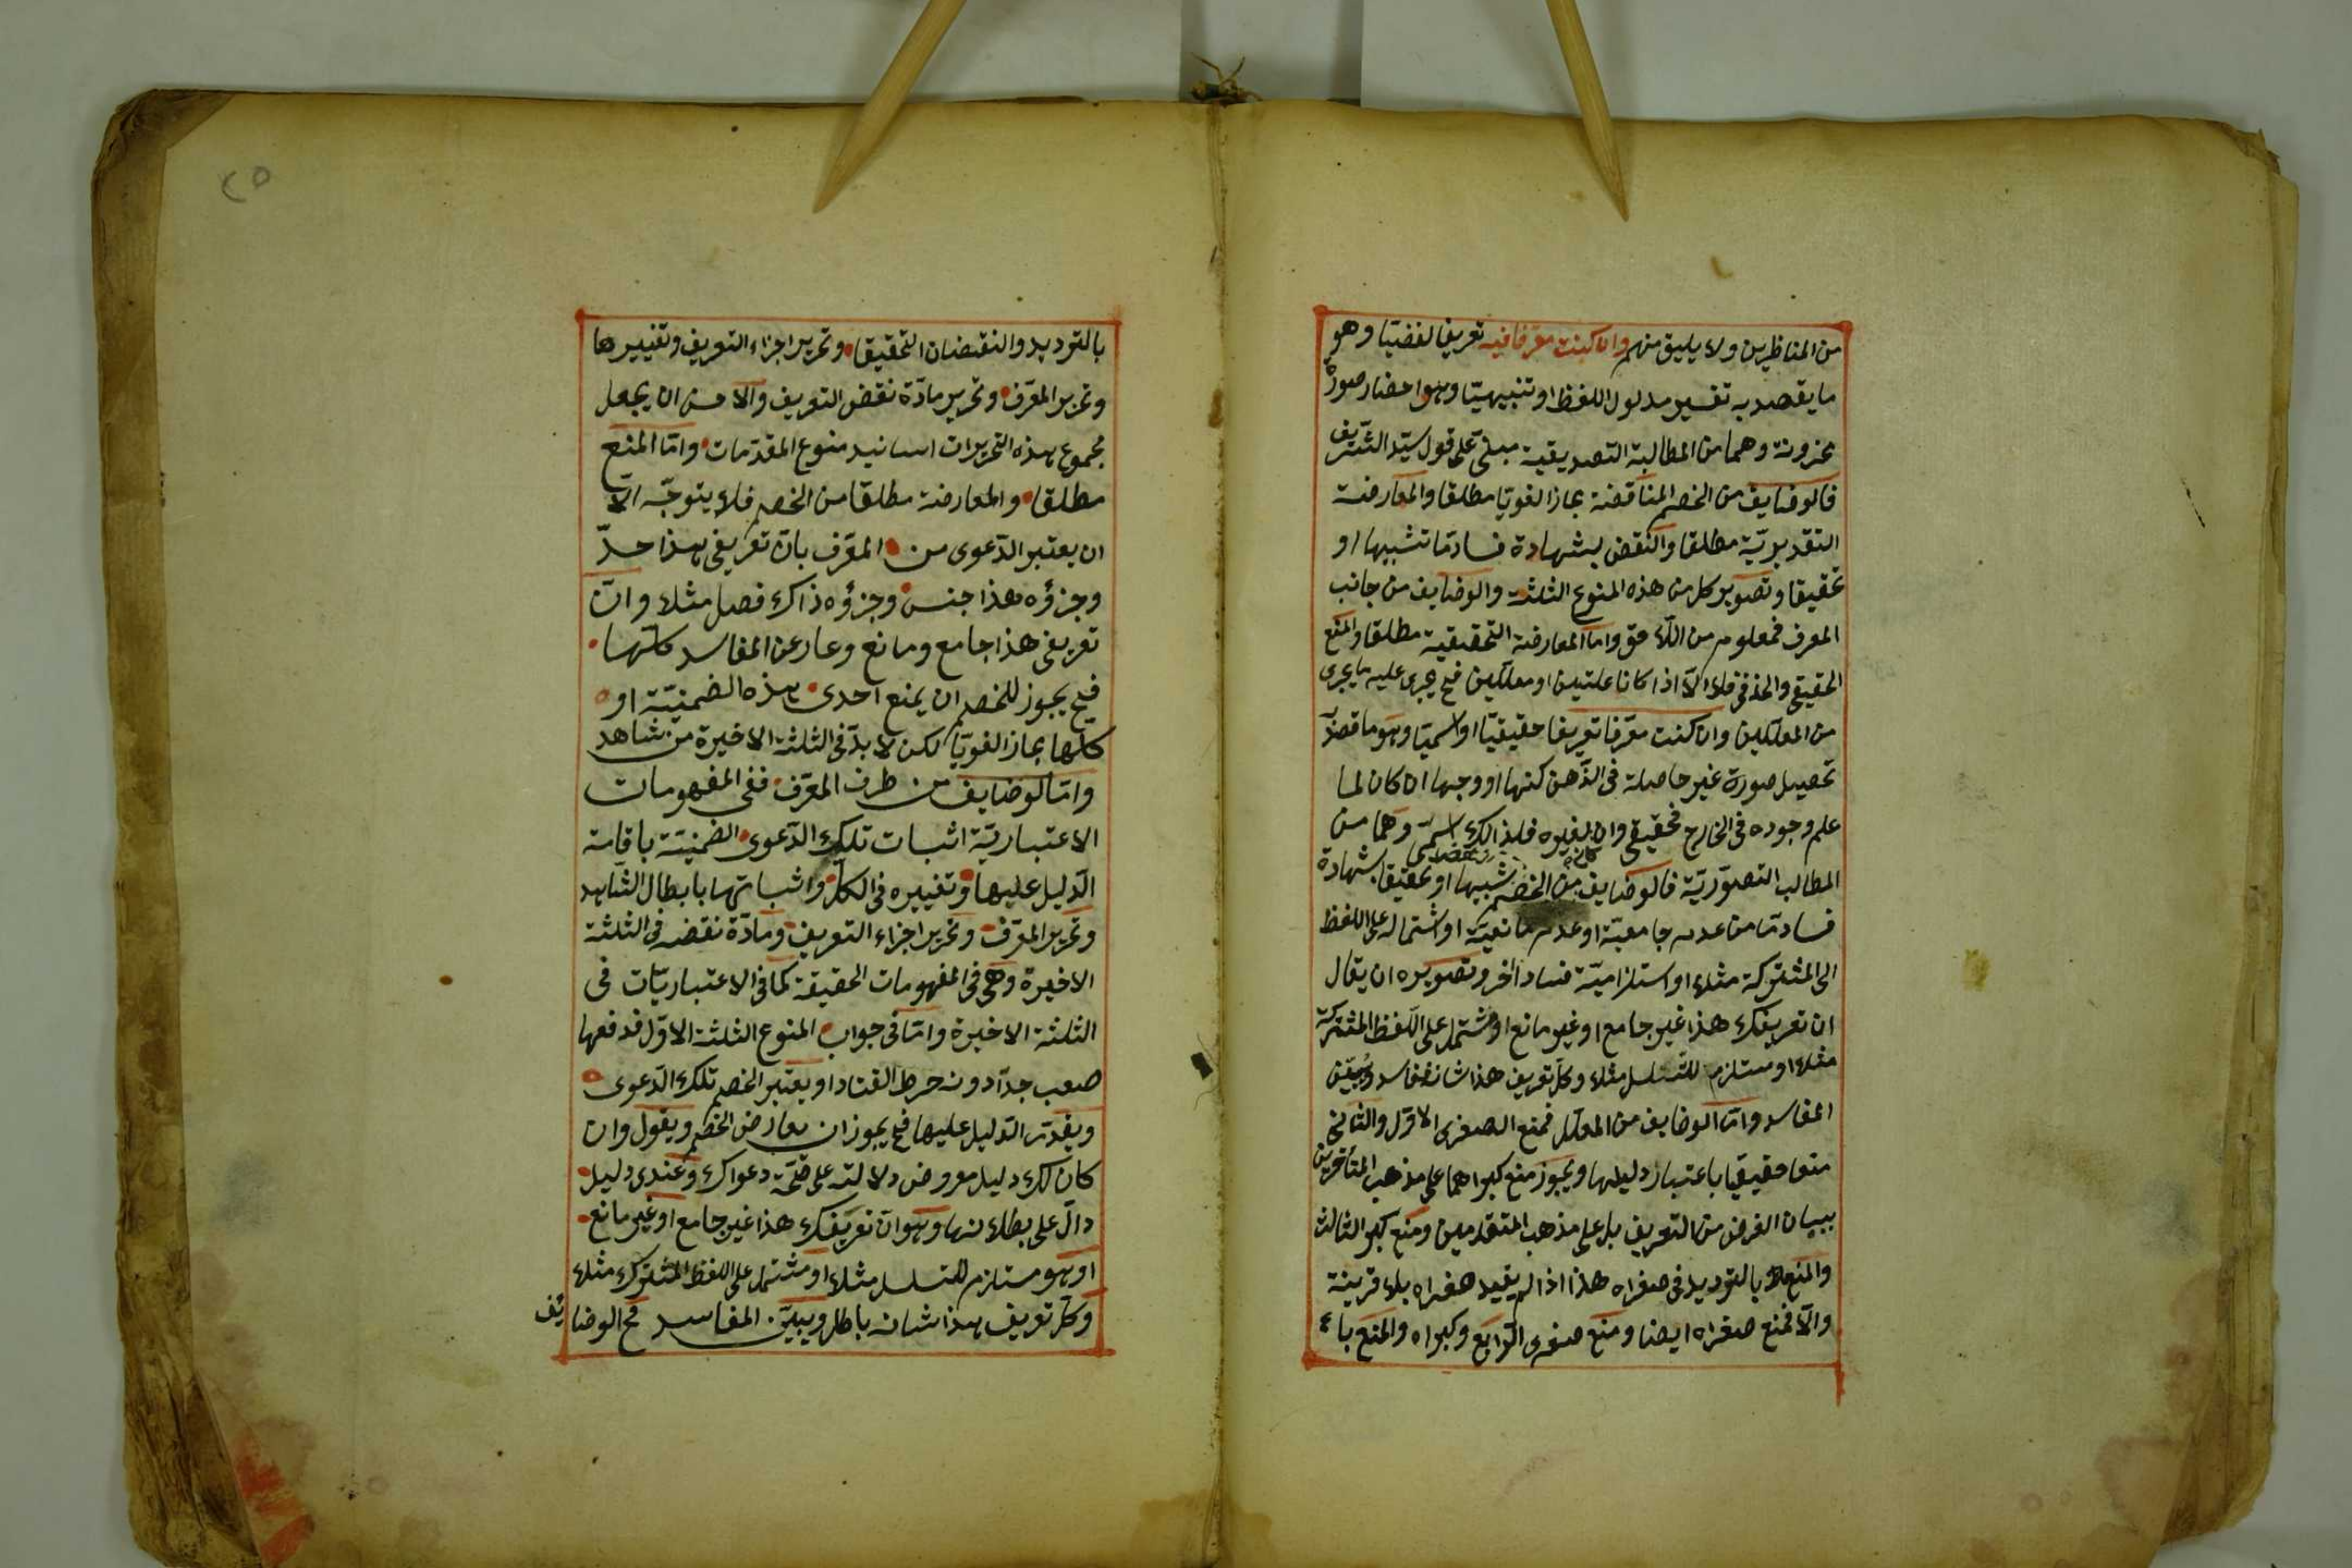 من المناظرين ولا يليق منهم وان كنت معرفا فيه تعريفا لفضيّا وهو
ما يقصد به تفسير مدلول اللفظ او تنبيهيّا وهو احضار صورة
مخزونة وهما من المطالبة التصديقية مبنىّ على قول سيّد الشّريف
فالوضايف من الخصم المناقضة مجازا لغويّا مطلقا والمعارضة
التقديريّة مطلقا والنقض بشهادة فساد مّا تشبيها او
تحقيقا وتصوير كل من هذه المنوع الثلثة والوضايف من جانب
المعرف فمعلوم من اللّاحق وامّا المعارضة التحقيقية مطلقا والمنع
الحقيقى والحذفى فلا الّا اذا كانا علّتين او معلّلين فح يجرى عليه ما يجرى
من المعلّلين وان كنت معرّفا تعريفا حقيقيّا او اسميّا وهو ما قصد
تحصيل صورة غير حاصلة فى الذّهن كنها او وجها ان كان لما
علم وجوده فى الخارج فحقيقى وان لغيره فلذالك اسمىّ وهما من
المطالب التصوّريّة فالوضايف من الخصم تشبيها او تحقيقا بشهادة
فساد مّا من عدم جامعيّة او عدم مانعيّة او اشتماله على اللفظ
الى المشتركة مثلا او استلزاميّة فساد اخر وتصويره ان يقال
ان تعريفك هذا غير جامع او غير مانع او مشتمل على اللّفظ المشتركة
مثلا او مستلزم للتّسلسل مثلا وكلّ تعريف هذا شانه ففاسد ويبيّن
المفاسد وامّا الوضايف من المعلّل فمنع الصغرى الاوّل والثّانى
منعا حقيقيا باعتبار دليلها ويجوز منع كبراهما على مذهب المتأخرين
ببيان الغرض من التعريف بل على مذهب المتقدمين ومنع كبر الثالث
والمنع بالترديد فى صغراه هذا اذا لم يقيد صغراه بلا قرينة
والّا فمنع صغراه ايضا ومنع صغرى الرّابع وكبراه والمنع با
٢٥
بالترديد والنقضان التحقيقا وتحرير اجزاء التعريف وتغييرها
وتحرير المعّرف وتحرير مادّة نقض التعريف والّا من ان يجعل
مجموع هذه التحريرات اسانيد منوع المقدّمات وامّا المنع
مطلقا والمعارضة مطلقا من الخصم فلا يتوجّه الّا
ان يعتبر الدّعوى من المعّرف بانّ تعريفى هذا حدّ
وجزؤه هذا جنس وجزؤه ذاك فصل مثلا وانّ
تعريفى هذا جامع ومانع وعار عن المفاسد كلّها
فح يجوز للخصم ان يمنع احدى هذه الضمنيّة او
كلّها مجازا لغويّا لكن لا بدّ فى الثلثة الاخيرة من شاهد
وامّا الوضايف من طرف المعّرف ففى المفهومات
الاعتباريّة اثبات تلك الدّعوى الضمنيّة باقامة
الدّليل عليها وتغييره فى الكل واثباتها بابطال الشّاهد
وتحرير المعّرف وتحرير اجزاء التعريف ومادّة نقضه فى الثلثة
الاخيرة وهى فى المفهومات الحقيقة كما فى الاعتباريّات فى
الثلثة الاخيرة وامّا فى جواب المنوع الثلثة الاوّل فدفعها
صعب جدّا دونه خرط القتاد او يعتبر الخصم تلك الدّعوى
ويقدّر الدّليل عليها فح يجوز ان يعارض الخصم ويقول وان
كان لك دليل مفروض دلالته على صحّة دعواك وعندى دليل
دالّ على بطلانها وهو انّ تعريفك هذا غير جامع او غير مانع
او هو مستلزم للتسلسل مثلا او مشتمل على اللفظ المشترك مثلا
وكلّ تعريف هذا شانه باطل ويبيّن المفاسد فح الوضايف